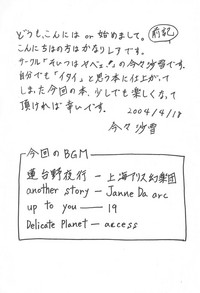 どうも、こんにちは or 始めまして。
前記
こんにちはの方はかなりレアです。
サークル『そいつはヤベェ!』の今々沙習です。
自分でも「イタイ」と思う本に仕上がって
しまった今回の本、少しでも楽しくなって
頂ければ幸いです。
2004/4/18
今々沙習
今回のBGM
蓮台野夜行 ー 上海アリス幻樂団
another story ー Janne Da arc
up to you ー 19
Delicate Planet ー access